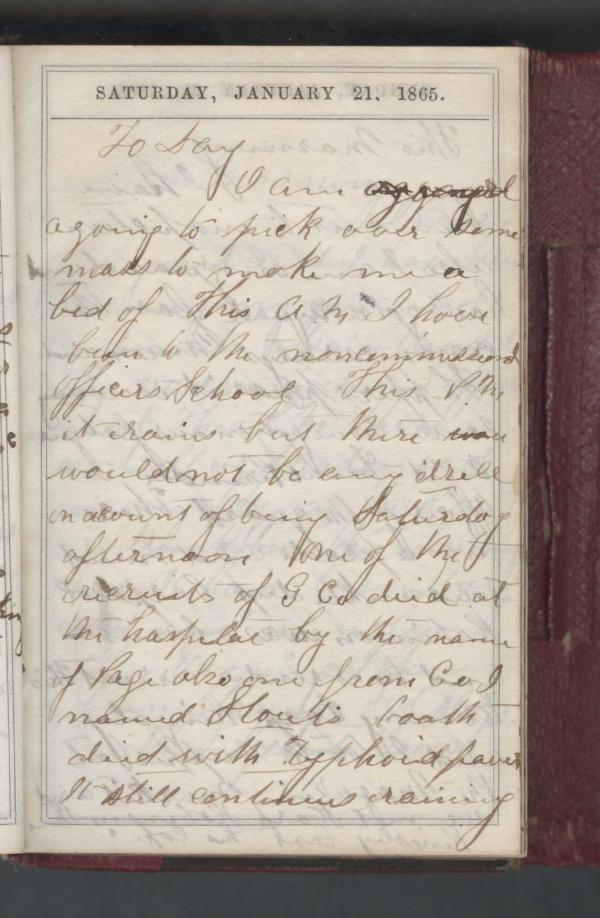 SATURDAY, JANUARY 21, 1865.
To Day
I am
agoing to pick over some
mass to make me a
bed of This A.M I have
been to the noncommissiond
officers School This P M
it rains but there
would not be any drill
on acount of being Saturday
afternoon One of the
recruits of G Co died at
the hospital by the name
of Page also one from Co I
named Stouts boath
died with Typhoid faver
It still continues raining